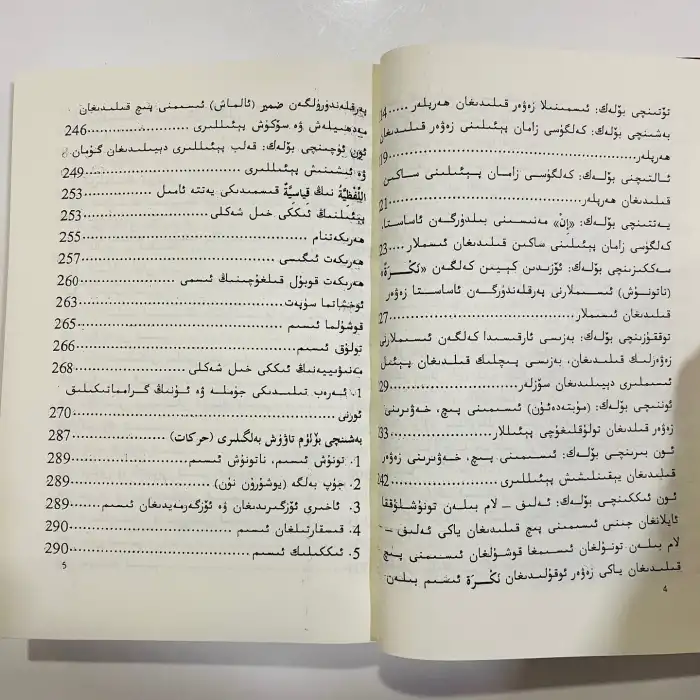 تۆتىنچى بۆلەك: ئىسىمنىلا زەۋەر قىلىدىغان ھەرپلەر ..... 34
بەشىنچى بۆلەك: كەلگۈسى زامان پېئىلىنى زەۋەر قىلىدىغان
ھەرپلەر ..... 19
ئالتىنچى بۆلەك: كەلگۈسى زامان پېئىلىنى ساكىن
قىلىدىغان ھەرپلەر ..... 21
يەتتىنچى بۆلەك: «إِنْ» مەنىسىنى بىلدۈرگەن ئاساستا،
كەلگۈسى زامان پېئىلىنى ساكىن قىلىدىغان ئىسىملار ..... 23
سەككىزىنچى بۆلەك: ئۆزىدىن كېيىن كەلگەن «نَكْرَةٌ»
(ناتونۇش) ئىسىملارنى پەرقلەندۈرگەن ئاساستا زەۋەر
قىلىدىغان ئىسىملار ..... 27
توققۇزىنچى بۆلەك: بەزىسى ئارقىسىدا كەلگەن ئىسىملارنى
زەۋەرلىك قىلىدىغان، بەزىسى پىچلىك قىلىدىغان پېئىل
ئىسىملىرى دېيىلىدىغان سۆزلەر ..... 29
ئونىنچى بۆلەك: (مۇبتەدەئۇن) ئىسىمنى پىچ، خەۋىرىنى
زەۋەر قىلىدىغان تولۇقلىغۇچى پېئىللار ..... 33
ئون بىرىنچى بۆلەك: ئىسىمنى پىچ، خەۋىرىنى زەۋەر
قىلىدىغان يېقىنلىشىش پېئىللىرى ..... 242
ئون ئىككىنچى بۆلەك: ئەلىق – لام بىلەن تونۇشلۇققا
ئايلانغان جىنىس ئىسىمنى پىچ قىلىدىغان ياكى ئەلىق –
لام بىلەن تونۇلغان ئىسىمغا قوشۇلغان ئىسىمنى پىچ
قىلىدىغان ياكى زەۋەر ئوقۇلىدىغان نَكْرَة ئىسىم بىلەن
4
پەرقلەندۈرۈلگەن ضمير (ئالماش) ئىسىمنى پىچ قىلىدىغان
مەدھىيىلەش ۋە سۆكۈش پېئىللىرى ..... 246
ئون ئۈچىنچى بۆلەك: قەلب پېئىللىرى دېيىلىدىغان گۇمان
ۋە ئىشىنىش پېئىللىرى ..... 249
اللَّفْظِيَّةُ نىڭ قِيَاسِيَّةٌ قىسمىدىكى يەتتە ئامىل ..... 253
پېئىلنىڭ ئىككى خىل شەكلى ..... 253
ھەرىكەتنام ..... 255
ھەرىكەت ئىگىسى ..... 257
ھەرىكەت قوبۇل قىلغۇچىنىڭ ئىسمى ..... 260
ئوخشاتما سۈپەت ..... 263
قوشۇلما ئىسىم ..... 265
تولۇق ئىسىم ..... 266
مەنىۋىييەنىڭ ئىككى خىل شەكلى ..... 268
1. ئەرەب تىلىدىكى جۈملە ۋە ئۇنىڭ گرامماتىكىلىق
ئورنى ..... 270
بەشىنچى بۆلۈم تاۋۇش بەلگىلىرى (حركات) ..... 287
1. تونۇش ئىسىم، ناتونۇش ئىسىم ..... 289
2. جۈپ بەلگە (يوشۇرۇن نۇن) ..... 289
3. ئاخىرى ئۆزگىرىدىغان ۋە ئۆزگەرمەيدىغان ئىسىم ..... 289
4. قىسقارتىلغان ئىسىم ..... 290
5. ئىككىلىك ئىسىم ..... 290
5